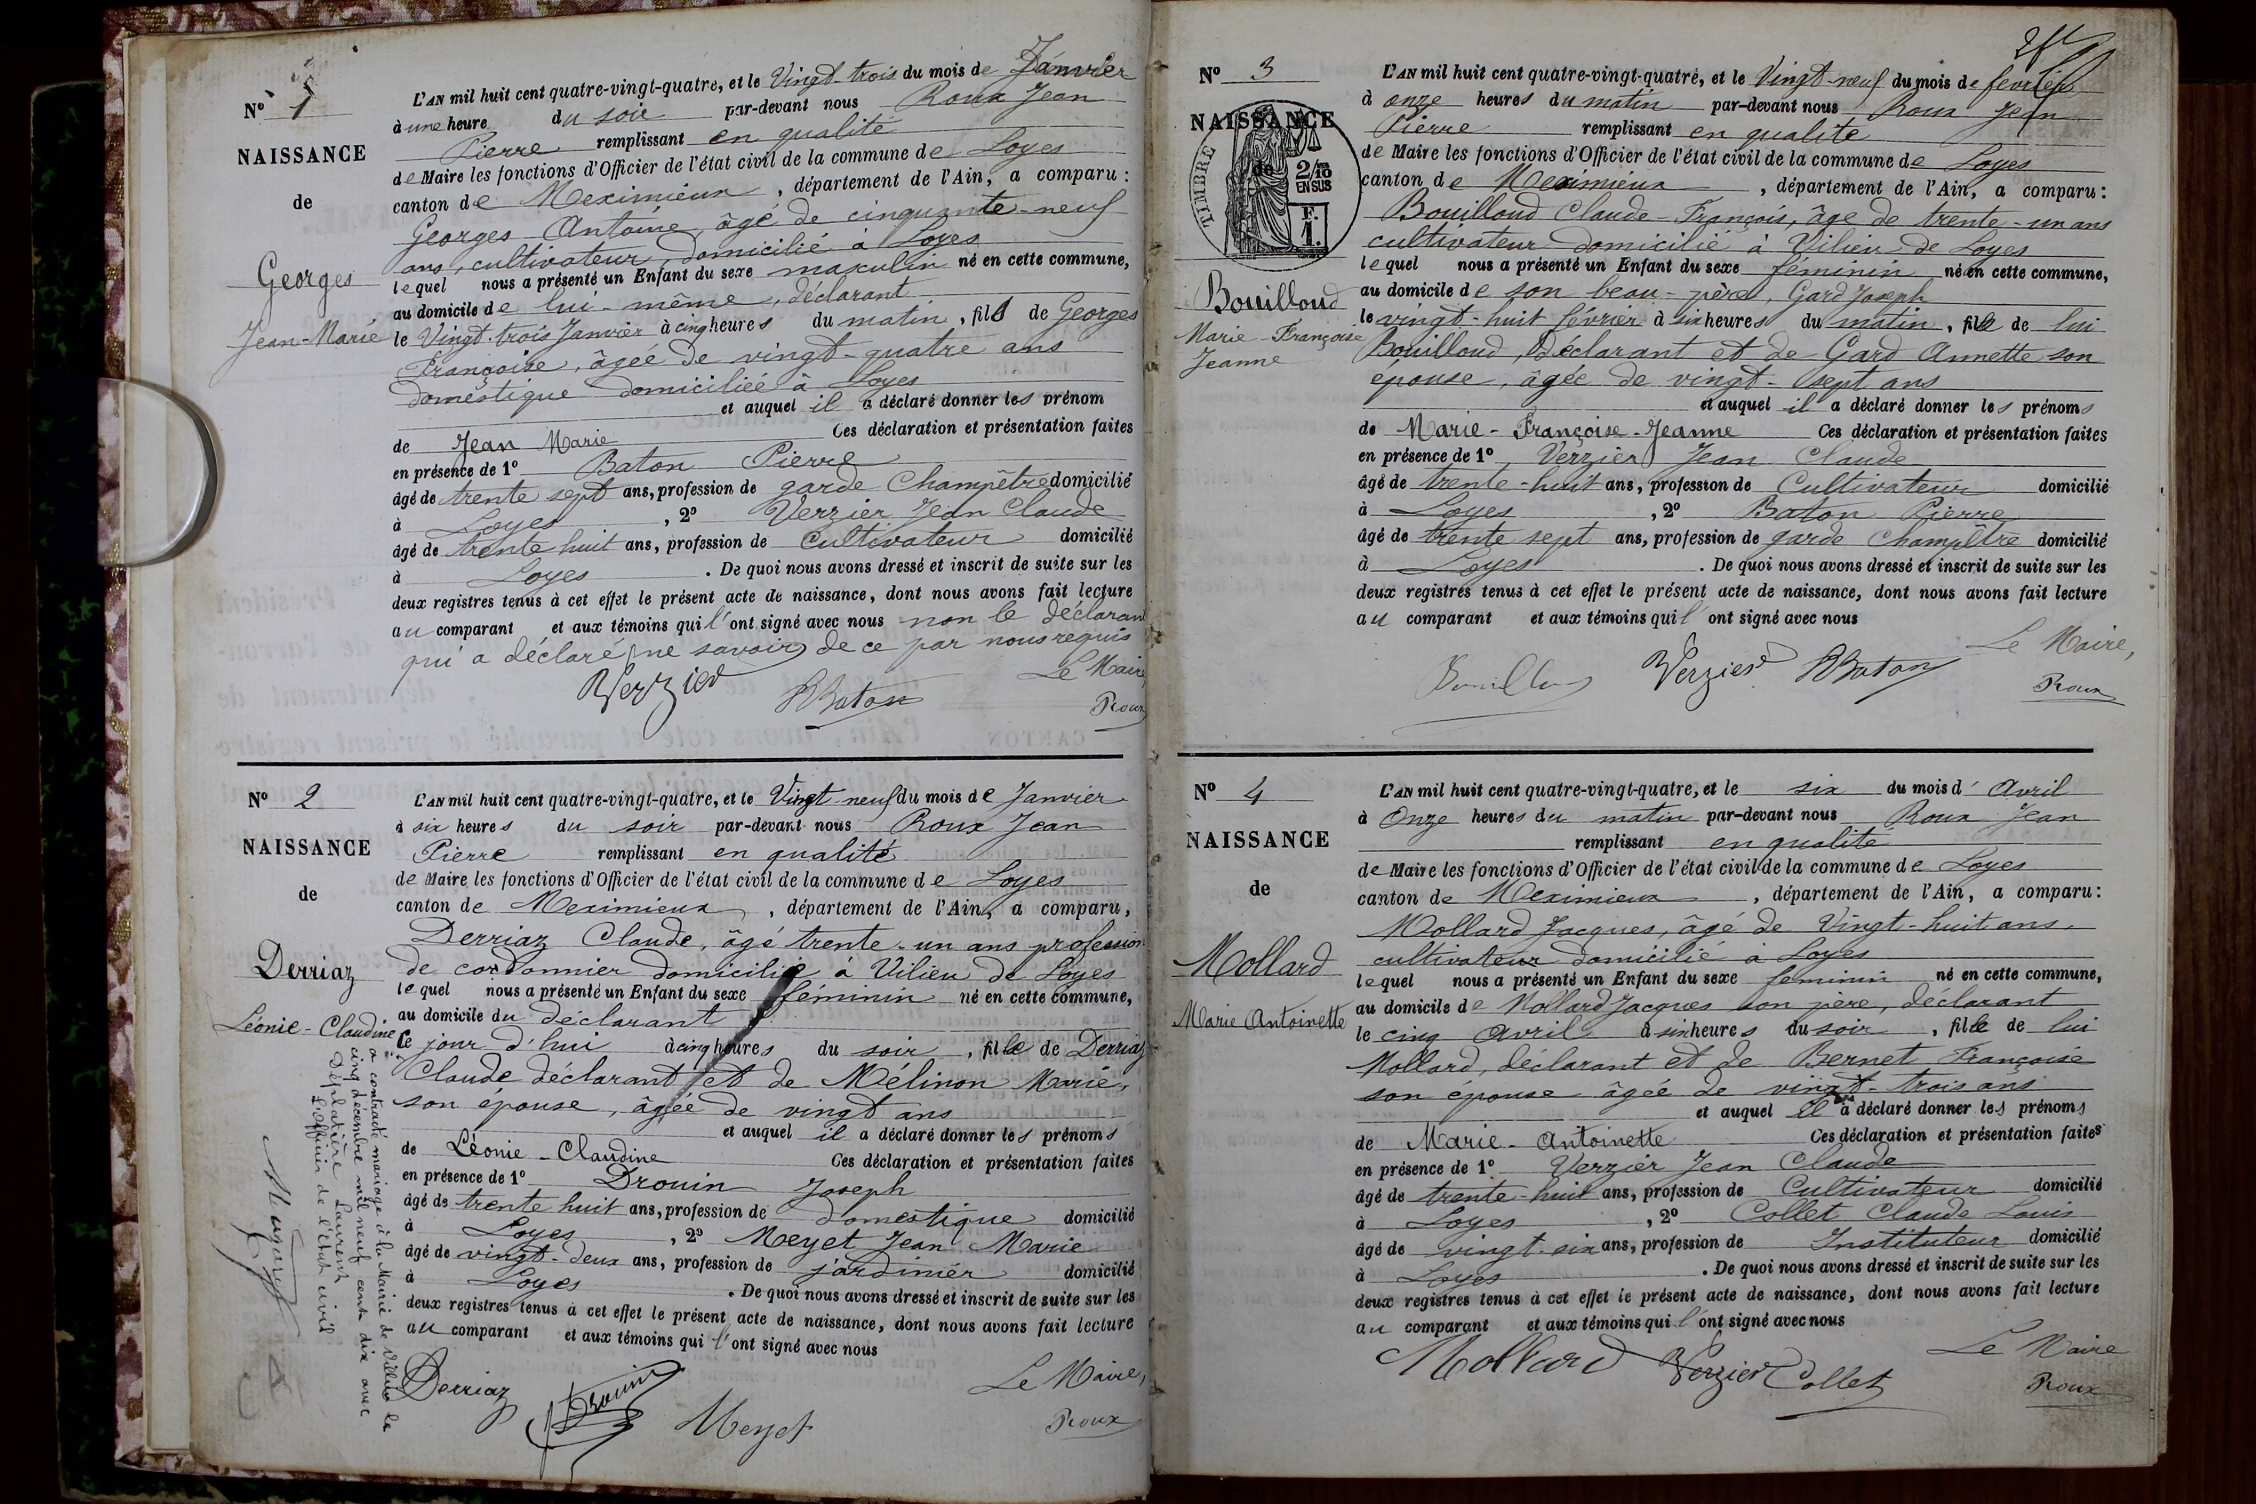 N° 1
NAISSANCE
de
Georges
Jean-Marie
L'AN mil huit cent quatre-vingt-quatre, et le Vingt-trois du mois de Janvier
à une heure du soir par-devant nous Roux Jean
Pierre remplissant en qualité
de Maire les fonctions d'Officier de l'état civil de la commune de Loyes
canton de Meximieux, département de l'Ain, a comparu :
Georges Antoine, âgé de cinquante-neuf
ans, cultivateur, domicilié à Loyes
lequel nous a présenté un Enfant du sexe masculin né en cette commune,
au domicile de lui-même, déclarant
le Vingt-trois Janvier à cinq heures du matin, fils de Georges
Françoise, âgée de vingt-quatre ans
domestique domiciliée à Loyes
et auquel il a déclaré donner les prénom
de Jean Marie Ces déclaration et présentation faites
en présence de 1° Baton Pierre
âgé de trente sept ans, profession de garde Champêtre domicilié
à Loyes, 2° Verzier Jean Claude
âgé de trente huit ans, profession de Cultivateur domicilié
à Loyes. De quoi nous avons dressé et inscrit de suite sur les
deux registres tenus à cet effet le présent acte de naissance, dont nous avons fait lecture
au comparant et aux témoins qui l'ont signé avec nous non le déclarant
qui a déclaré ne savoir de ce par nous requis
Le Maire,
Verzier PBaton Roux
N° 2
NAISSANCE
de
Derriaz
Léonie-Claudine
a contracté mariage à la Mairie de Villieu le
cinq décembre mil neuf cent dix avec
Déplatière Laurent
L'Officier de l'état civil
L'AN mil huit cent quatre-vingt-quatre, et le Vingt-neuf du mois de Janvier
à six heures du soir par-devant nous Roux Jean
Pierre remplissant en qualité
de Maire les fonctions d'Officier de l'état civil de la commune de Loyes
canton de Meximieux, département de l'Ain, a comparu,
Derriaz Claude, âgé trente-un ans profession
de cordonnier domicilié à Vilieu de Loyes
lequel nous a présenté un Enfant du sexe féminin né en cette commune,
au domicile du déclarant
Ce jour d'hui à cinq heures du soir, fille de Derriaz
Claude déclarant et de Mélinon Marie,
son épouse, âgée de vingt ans
et auquel il a déclaré donner les prénoms
de Léonie-Claudine Ces déclaration et présentation faites
en présence de 1° Drouin Joseph
âgé de trente huit ans, profession de domestique domicilié
à Loyes, 2° Meyet Jean Marie
âgé de vingt-deux ans, profession de jardinier domicilié
à Loyes. De quoi nous avons dressé et inscrit de suite sur les
deux registres tenus à cet effet le présent acte de naissance, dont nous avons fait lecture
au comparant et aux témoins qui l'ont signé avec nous
Le Maire,
Derriaz JDrouin Meyet Roux
N° 3
NAISSANCE
de
TIMBRE
2/10
EN SUS
F.
1.
Bouilloud
Marie-Françoise
Jeanne
L'AN mil huit cent quatre-vingt-quatre, et le Vingt-neuf du mois de février
à onze heures du matin par-devant nous Roux Jean
Pierre remplissant en qualité
de Maire les fonctions d'Officier de l'état civil de la commune de Loyes
canton de Meximieux, département de l'Ain, a comparu :
Bouilloud Claude-François, âgé de trente-un ans
cultivateur domicilié à Vilieu de Loyes
lequel nous a présenté un Enfant du sexe féminin né en cette commune,
au domicile de son beau-père, Gard Joseph
le vingt-huit février à six heures du matin, fille de lui
Bouilloud, Déclarant et de Gard Annette son
épouse, âgée de vingt-sept ans
et auquel il a déclaré donner les prénoms
de Marie-Françoise-Jeanne Ces déclaration et présentation faites
en présence de 1° Verzier Jean Claude
âgé de trente-huit ans, profession de Cultivateur domicilié
à Loyes, 2° Baton Pierre
âgé de trente sept ans, profession de garde Champêtre domicilié
à Loyes. De quoi nous avons dressé et inscrit de suite sur les
deux registres tenus à cet effet le présent acte de naissance, dont nous avons fait lecture
au comparant et aux témoins qui l'ont signé avec nous
Le Maire,
Verzier PBaton Roux
N° 4
NAISSANCE
de
Mollard
Marie Antoinette
L'AN mil huit cent quatre-vingt-quatre, et le six du mois d'Avril
à Onze heures du matin par-devant nous Roux Jean
remplissant en qualité
de Maire les fonctions d'Officier de l'état civil de la commune de Loyes
canton de Meximieux, département de l'Ain, a comparu :
Mollard Jacques, âgé de Vingt-huit ans,
cultivateur domicilié à Loyes
lequel nous a présenté un Enfant du sexe féminin né en cette commune,
au domicile de Mollard Jacques son père, déclarant
le cinq Avril à six heures du soir, fille de lui
Mollard, déclarant et de Bernet Françoise
son épouse âgée de vingt-trois ans
et auquel il a déclaré donner les prénoms
de Marie-Antoinette Ces déclaration et présentation faites
en présence de 1° Verzier Jean Claude
âgé de trente-huit ans, profession de Cultivateur domicilié
à Loyes, 2° Collet Claude Louis
âgé de vingt-six ans, profession de Instituteur domicilié
à Loyes. De quoi nous avons dressé et inscrit de suite sur les
deux registres tenus à cet effet le présent acte de naissance, dont nous avons fait lecture
au comparant et aux témoins qui l'ont signé avec nous
Le Maire
Mollard Verzier Collet Roux